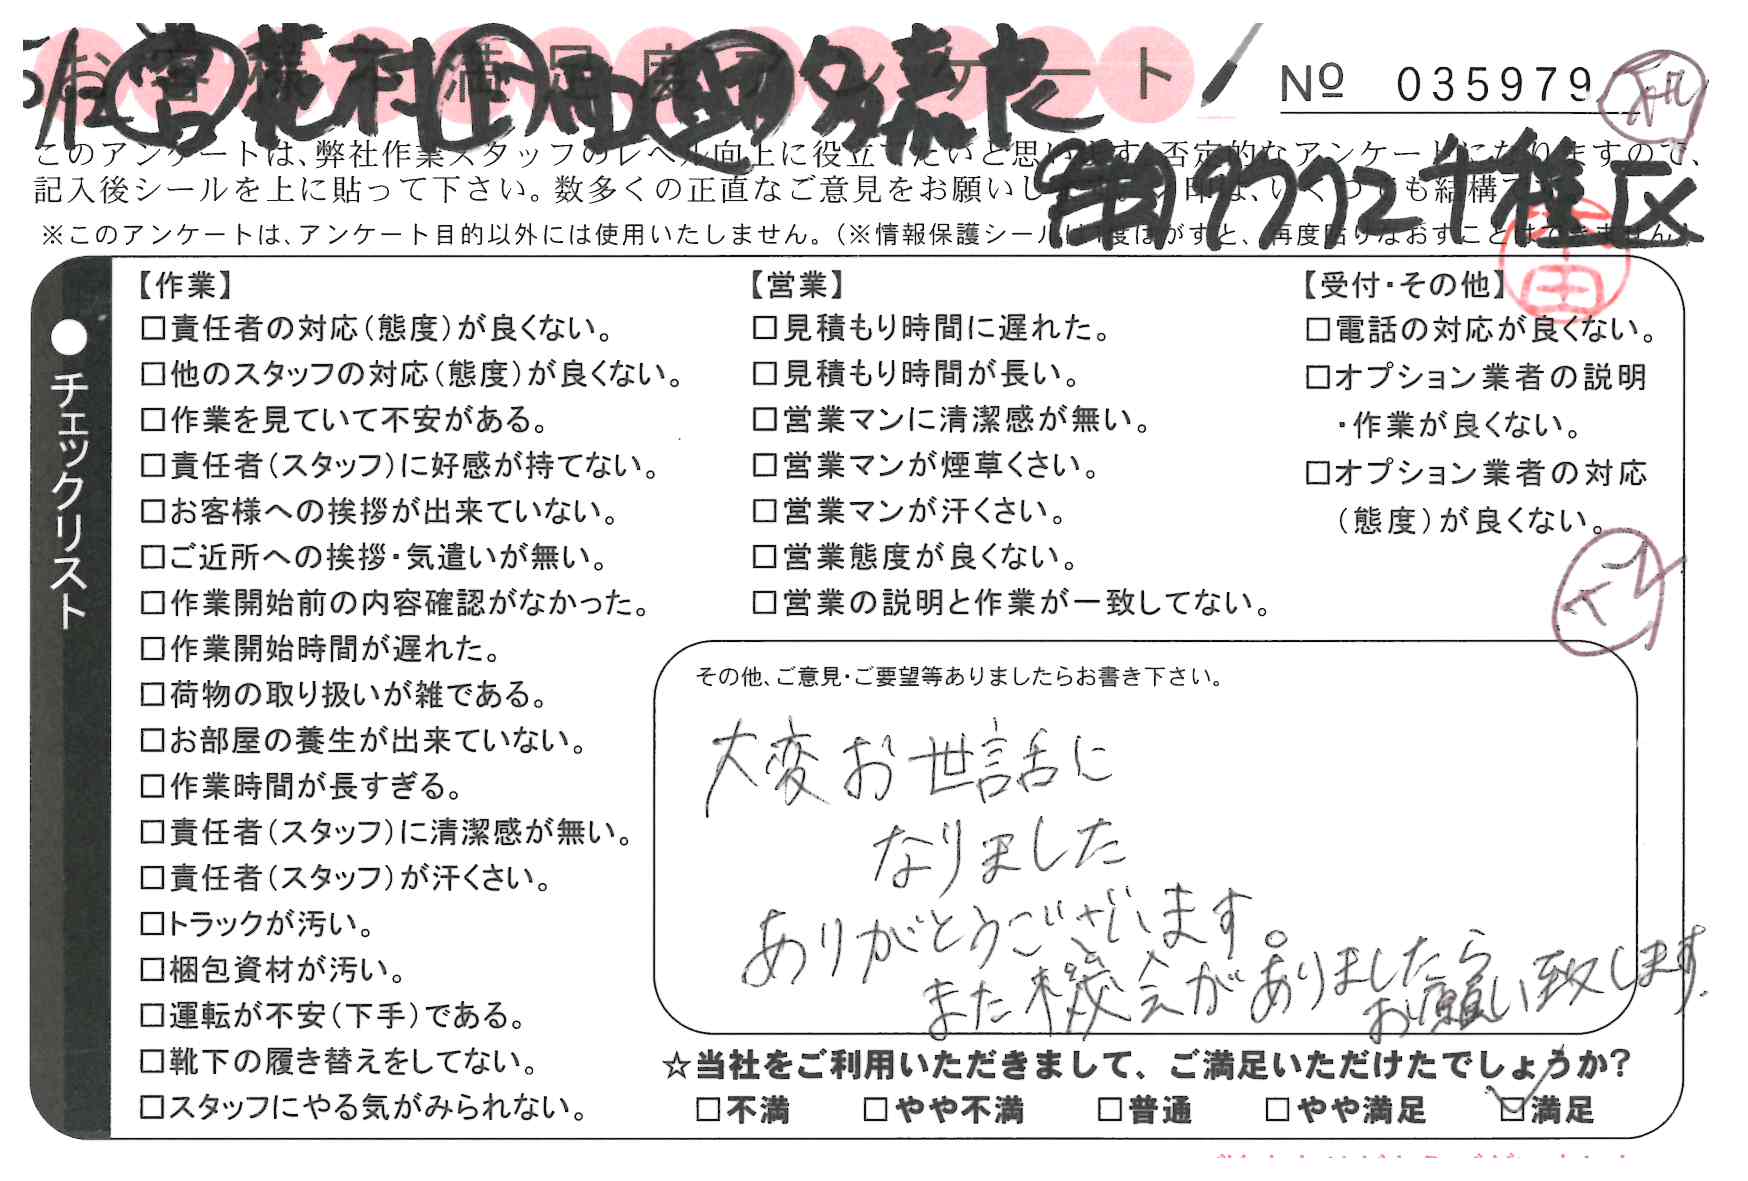 お客様不満足度アンケート
№ 035979
このアンケートは、弊社作業スタッフのレベル向上に役立てたいと思います。否定的なアンケートになりますので、
記入後シールを上に貼って下さい。数多くの正直なご意見をお願いし 印は、いくつでも結構で
※このアンケートは、アンケート目的以外には使用いたしません。（※情報保護シールは1度はがすと、再度貼りなおすことはできません）
千種区
●チェックリスト
【作業】
□責任者の対応（態度）が良くない。
□他のスタッフの対応（態度）が良くない。
□作業を見ていて不安がある。
□責任者（スタッフ）に好感が持てない。
□お客様への挨拶が出来ていない。
□ご近所への挨拶・気遣いが無い。
□作業開始前の内容確認がなかった。
□作業開始時間が遅れた。
□荷物の取り扱いが雑である。
□お部屋の養生が出来ていない。
□作業時間が長すぎる。
□責任者（スタッフ）に清潔感が無い。
□責任者（スタッフ）が汗くさい。
□トラックが汚い。
□梱包資材が汚い。
□運転が不安（下手）である。
□靴下の履き替えをしてない。
□スタッフにやる気がみられない。
【営業】
□見積もり時間に遅れた。
□見積もり時間が長い。
□営業マンに清潔感が無い。
□営業マンが煙草くさい。
□営業マンが汗くさい。
□営業態度が良くない。
□営業の説明と作業が一致してない。
【受付・その他】
□電話の対応が良くない。
□オプション業者の説明
・作業が良くない。
□オプション業者の対応
（態度）が良くない。
その他、ご意見・ご要望等ありましたらお書き下さい。
大変お世話に
なりました
ありがとうございます。
また機会がありましたら
お願い致します.
☆当社をご利用いただきまして、ご満足いただけたでしょうか？
□不満 □やや不満 □普通 □やや満足 ☑満足